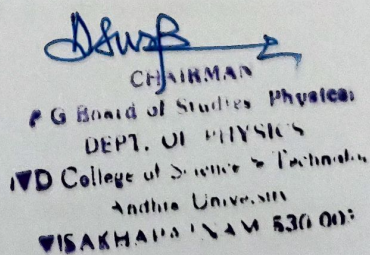 CHAIRMAN
P G Board of Studies Physics
DEPT. OF PHYSICS
College of Science & Technology
Andhra University
VISAKHAPATNAM 530 003